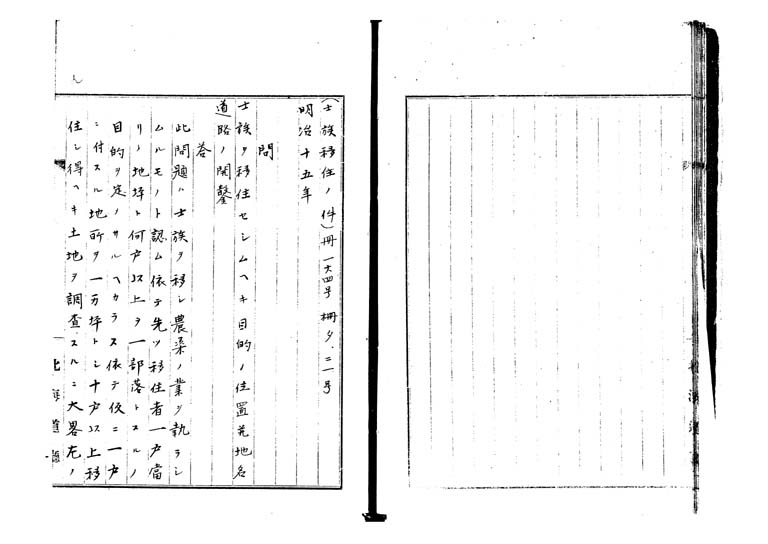 (士族移住ノ件)冊一六四号 冊夕.二一号
明治十五年
問
士族ヲ移住セシムヘキ目的ノ位置並地名
道路ノ開鑿
答
此問題ハ士族ヲ移シ農桑ノ業ヲ執ラシ
ムルモノト認ム依テ先ツ移住者一戸當
リノ地坪ト何戸以上ヲ一部落トスルノ
目的ヲ定メサルヘカラス依テ仮ニ一戸
ニ付スル地所ヲ一万坪トシ十戸以上移
住シ得ヘキ土地ヲ調査スルニ大畧左ノ
北海道廳